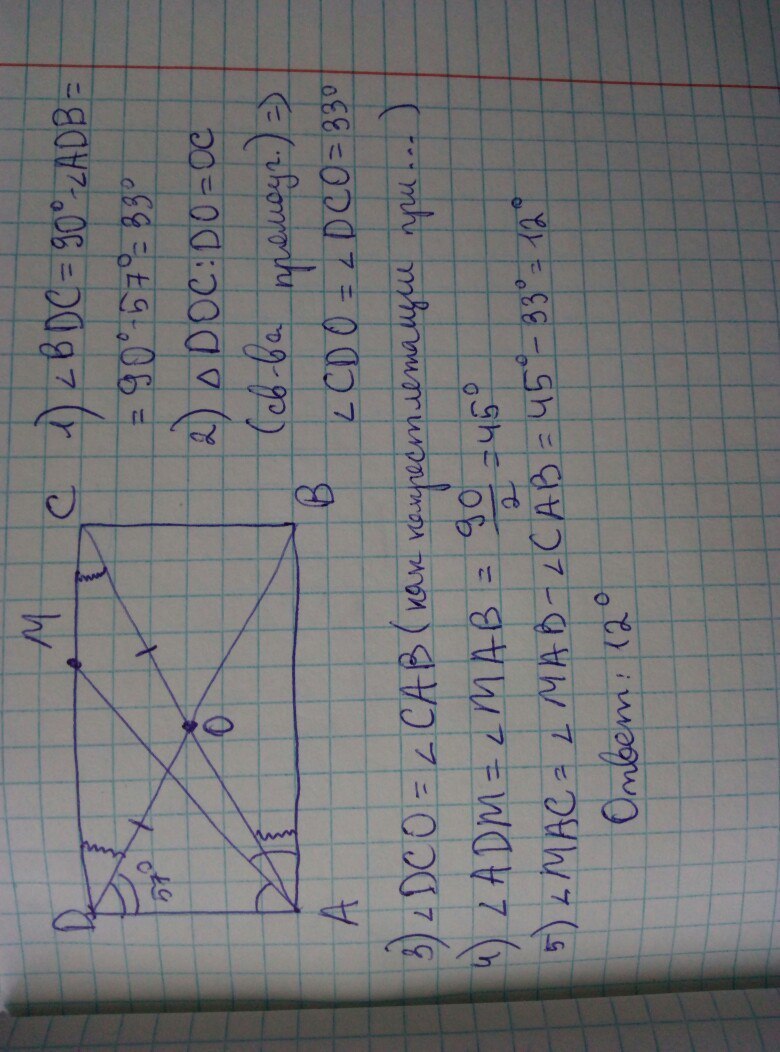 D
M
C
O
57°
A
B
1) ∠BDC = 90° - ∠ADB =
= 90° - 57° = 33°
2) △ DOC: DO = OC
(св-ва прямоуг.) =>
∠CDO = ∠DCO = 33°
3) ∠DCO = ∠CAB (как накрестлежащие при...)
4) ∠ADM = ∠MAB = 90/2 = 45°
5) ∠MAC = ∠MAB - ∠CAB = 45° - 33° = 12°
Ответ: 12°